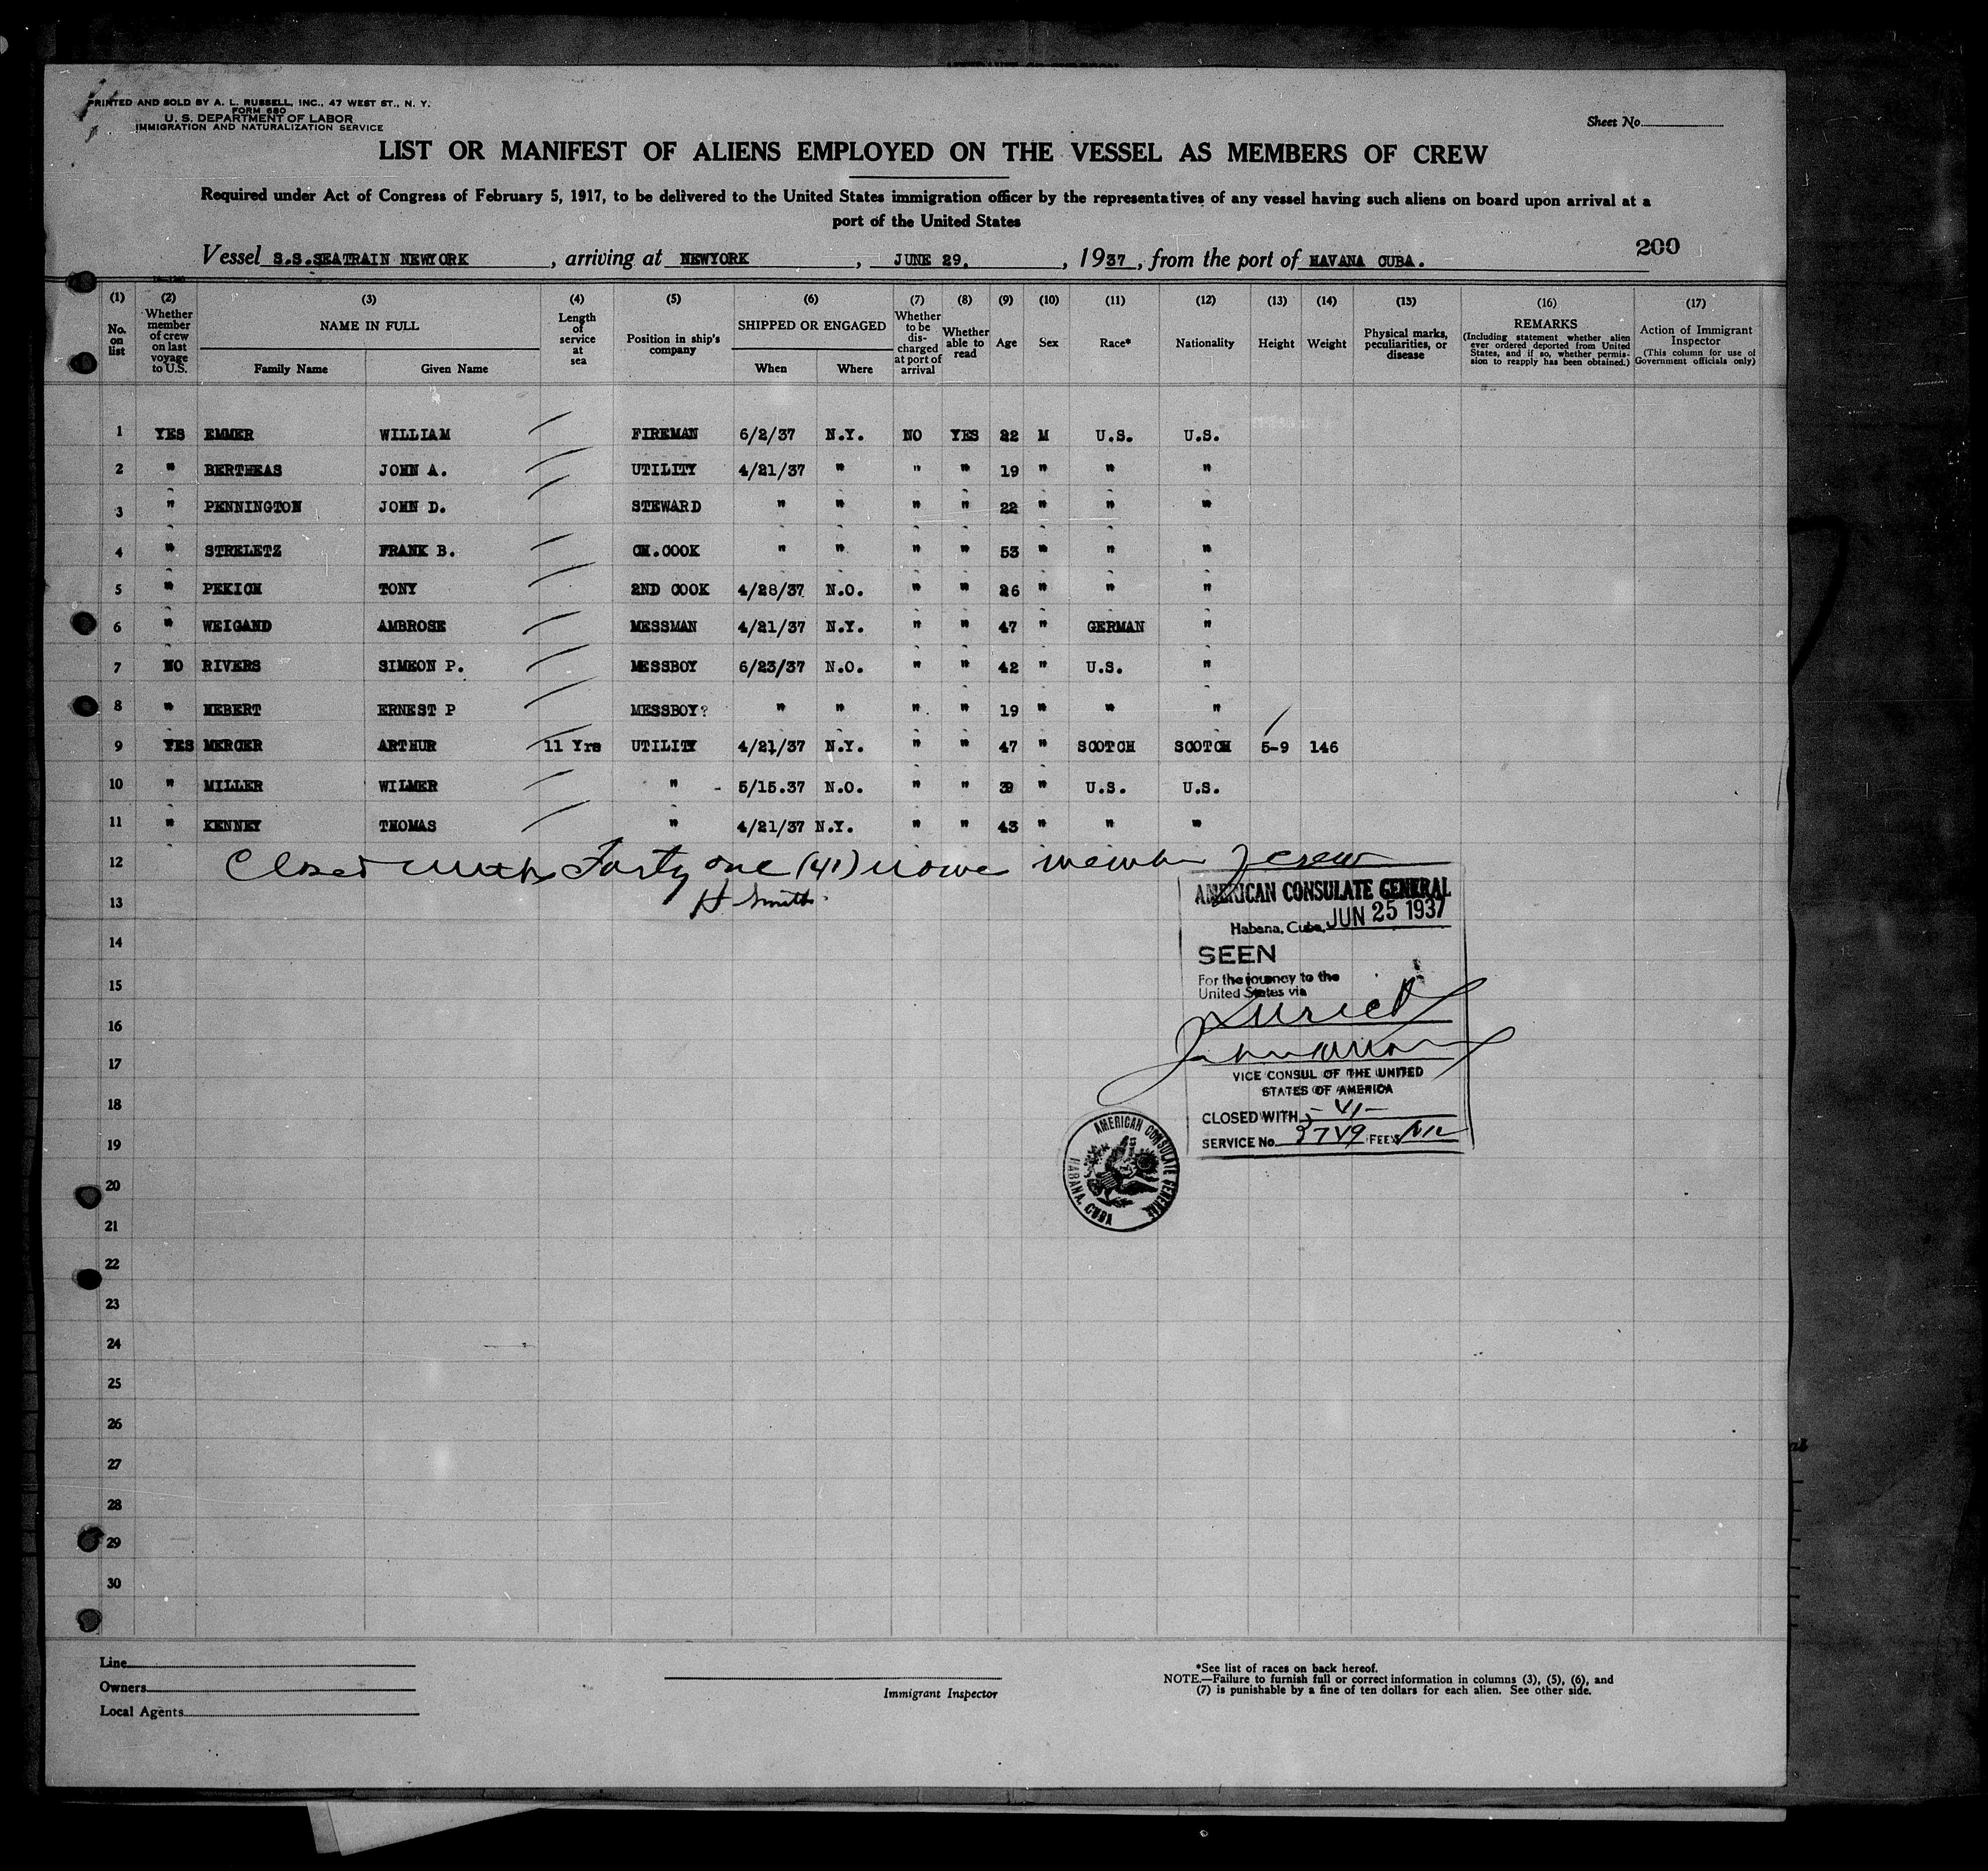 PRINTED AND SOLD BY A. L. RUSSELL, INC., 47 WEST ST., N. Y.
FORM 680
U. S. DEPARTMENT OF LABOR
IMMIGRATION AND NATURALIZATION SERVICE
Sheet No.
LIST OR MANIFEST OF ALIENS EMPLOYED ON THE VESSEL AS MEMBERS OF CREW
Required under Act of Congress of February 5, 1917, to be delivered to the United States immigration officer by the representatives of any vessel having such aliens on board upon arrival at a
port of the United States
200
Vessel S.S.SEATRAIN NEWYORK, arriving at NEWYORK, JUNE 29, 1937, from the port of HAVANA CUBA.
(1) (2) (3) (4) (5) (6) (7) (8) (9) (10) (11) (12) (13) (14) (15) (16) (17)
No. on list
Whether member of crew on last voyage to U.S.
NAME IN FULL
Family Name Given Name
Length of service at sea
Position in ship's company
SHIPPED OR ENGAGED
When Where
Whether to be discharged at port of arrival
Whether able to read
Age
Sex
Race*
Nationality
Height
Weight
Physical marks, peculiarities, or disease
REMARKS
(Including statement whether alien ever ordered deported from United States, and if so, whether permission to reapply has been obtained.)
Action of Immigrant Inspector
(This column for use of Government officials only)
1 YES EMMER WILLIAM FIREMAN 6/2/37 N.Y. NO YES 22 M U.S. U.S.
2 " BERTHEAS JOHN A. UTILITY 4/21/37 " " " 19 " " "
3 " PENNINGTON JOHN D. STEWARD " " " " 22 " " "
4 " STRELETZ FRANK B. CH.COOK " " " " 53 " " "
5 " PEKICH TONY 2ND COOK 4/28/37 N.O. " " 26 " " "
6 " WEIGAND AMBROSE MESSMAN 4/21/37 N.Y. " " 47 " GERMAN "
7 NO RIVERS SIMEON P. MESSBOY 6/23/37 N.O. " " 42 " U.S. "
8 " HEBERT ERNEST P MESSBOY? " " " " 19 " " "
9 YES MERCER ARTHUR 11 Yrs UTILITY 4/21/37 N.Y. " " 47 " SCOTCH SCOTCH 5-9 146
10 " MILLER WILMER " - 5/15.37 N.O. " " 39 " U.S. U.S.
11 " KENNEY THOMAS " 4/21/37 N.Y. " " 43 " " "
12 Closed with Forty one (41) member of crew
13 H Smith
AMERICAN CONSULATE GENERAL
Habana, Cuba, JUN 25 1937
SEEN
For the journey to the
United States via
VICE CONSUL OF THE UNITED
STATES OF AMERICA
CLOSED WITH - 41 -
SERVICE No. 3749 FEES Nil
AMERICAN CONSULATE GENERAL
HABANA, CUBA
14
15
16
17
18
19
20
21
22
23
24
25
26
27
28
29
30
Line
Owners
Local Agents
Immigrant Inspector
*See list of races on back hereof.
NOTE.—Failure to furnish full or correct information in columns (3), (5), (6), and
(7) is punishable by a fine of ten dollars for each alien. See other side.